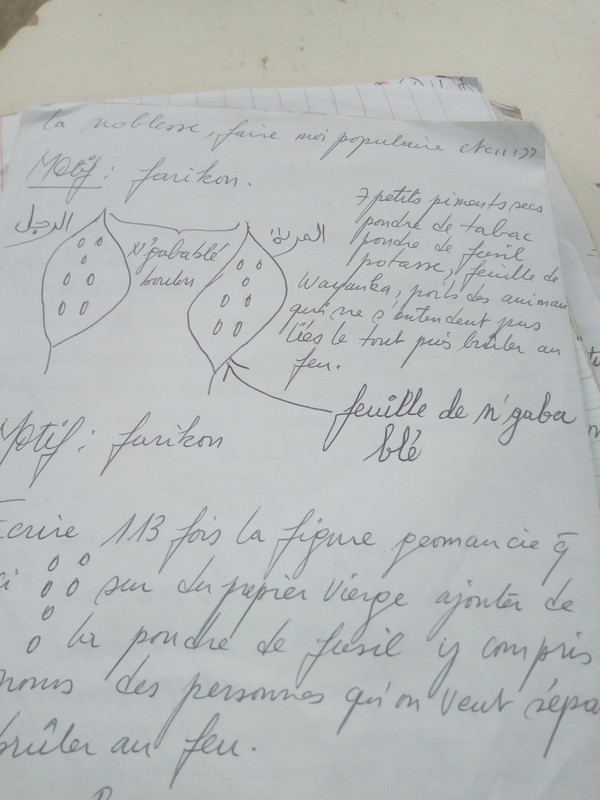 la noblesse, faire moi populaire
Motif : farikon.
الرجل
N'gabablé
boulen
المرئة
7 petits piments secs
poudre de tabac
poudre de fusil
potasse, feuille de
Wayanka, poils des animau
qui ne s'entendent pas
liés le tout puis brûler au
feu.
feuille de n'gaba
blé
Motif : farikon
Ecrire 113 fois la figure geomancie
ci sur du papier vierge ajouter de
la poudre de fusil y compris
noms des personnes qu'on veut sépa
brûler au feu.